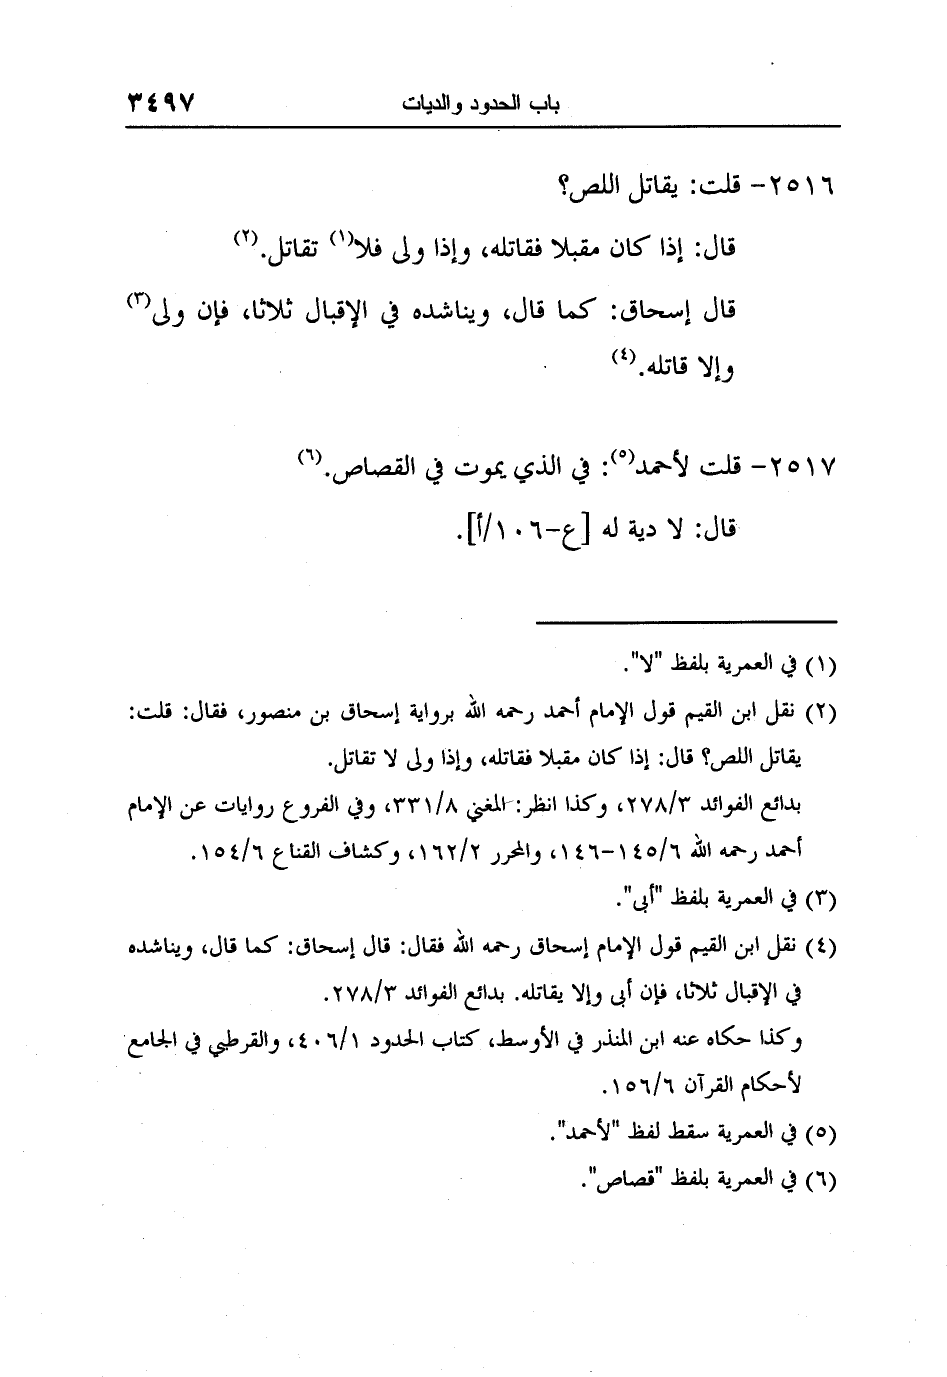 باب الحدود والديات ٣٤٩٧
٢٥١٦- قلت: يقاتل اللص؟
قال: إذا كان مقبلا فقاتله، وإذا ولى فلا(١) تقاتل.(٢)
قال إسحاق: كما قال، ويناشده في الإقبال ثلاثا، فإن ولى(٣)
وإلا قاتله.(٤)
٢٥١٧- قلت لأحمد(٥): في الذي يموت في القصاص.(٦)
قال: لا دية له [ع-١٠٦/أ].
(١) في العمرية بلفظ "لا".
(٢) نقل ابن القيم قول الإمام أحمد رحمه الله برواية إسحاق بن منصور، فقال: قلت:
يقاتل اللص؟ قال: إذا كان مقبلا فقاتله، وإذا ولى لا تقاتل.
بدائع الفوائد ٢٧٨/٣، وكذا انظر: المغني ٣٣١/٨، وفي الفروع روايات عن الإمام
أحمد رحمه الله ١٤٥/٦-١٤٦، والمحرر ١٦٢/٢، وكشاف القناع ١٥٤/٦.
(٣) في العمرية بلفظ "أبى".
(٤) نقل ابن القيم قول الإمام إسحاق رحمه الله فقال: قال إسحاق: كما قال، ويناشده
في الإقبال ثلاثا، فإن أبى وإلا يقاتله. بدائع الفوائد ٢٧٨/٣.
وكذا حكاه عنه ابن المنذر في الأوسط، كتاب الحدود ٤٠٦/١، والقرطبي في الجامع
لأحكام القرآن ١٥٦/٦.
(٥) في العمرية سقط لفظ "لأحمد".
(٦) في العمرية بلفظ "قصاص".